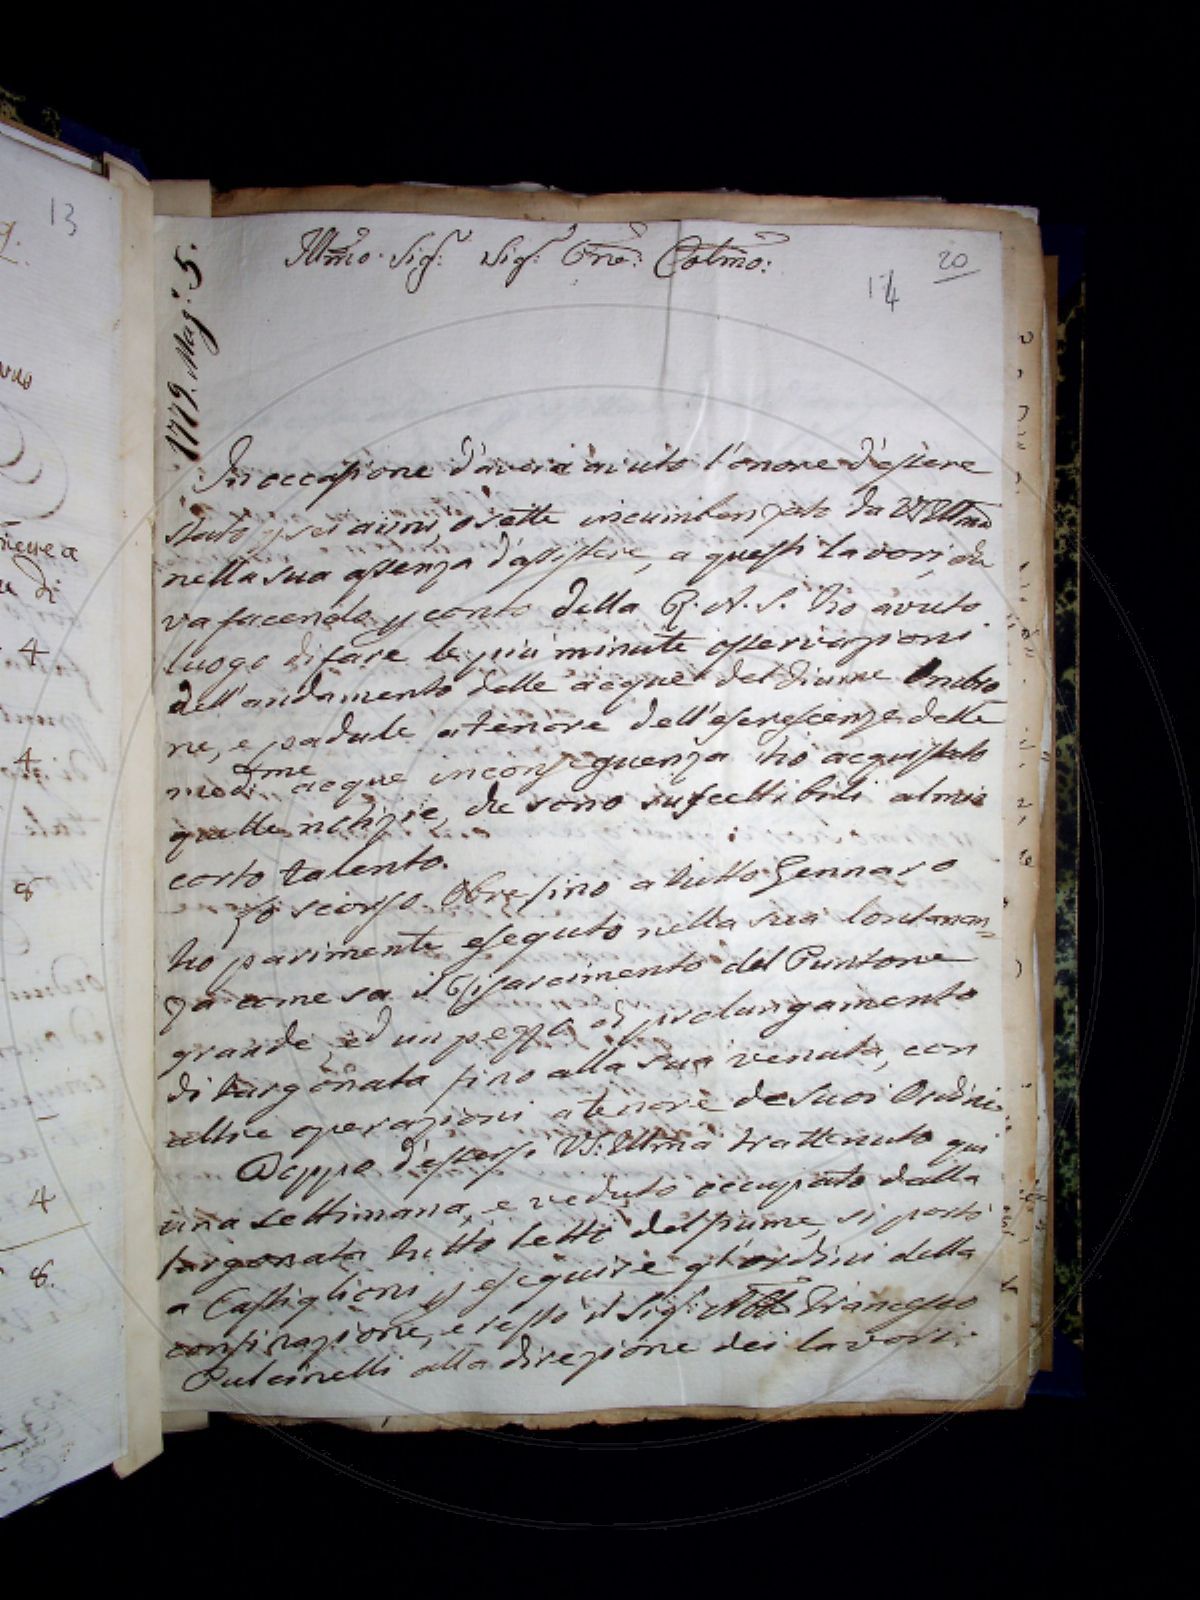 13
20
14
1779. Mag: 5.
Illmo. Sig:r Sig:r One: Colmo:
In occasione d'avere aiuto l'onore d'essere
stato p sei anni, o sette incumbenzato da VS Illma
nella sua assenza d'assistere, a questi lavori, che
va facendo p conto della R. A. S. ho avuto
luogo di fare le più minute osservazioni
dell'andamento delle acque del fiume Ombro
ne, e padule a tenore dell'escrescenze delle
medme acque in conseguenza ho acquistato
quelle notizie, che sono suscettibili al mio
corto talento.
Lo scorso Obre sino a tutto Gennaro
ho parimente eseguto nella sua lontanan=
za come sa il Risarcimento del Puntone
grande, ed un pezzo di prolungamento
di targonata sino alla sua venuta, con
altre operazioni a tenore de suoi Ordini.
Doppo d'essersi VS: Illma trattenuto qui
una settimana, e veduto occupato dalla
targonata tutto letto del fiume, si portò
a Castiglioni p eseguire gl'ordini della
confinazione, e restò il Sig:r Francesco
Pulcinelli alla direzione dei lavori.
4
4
8
4
8.